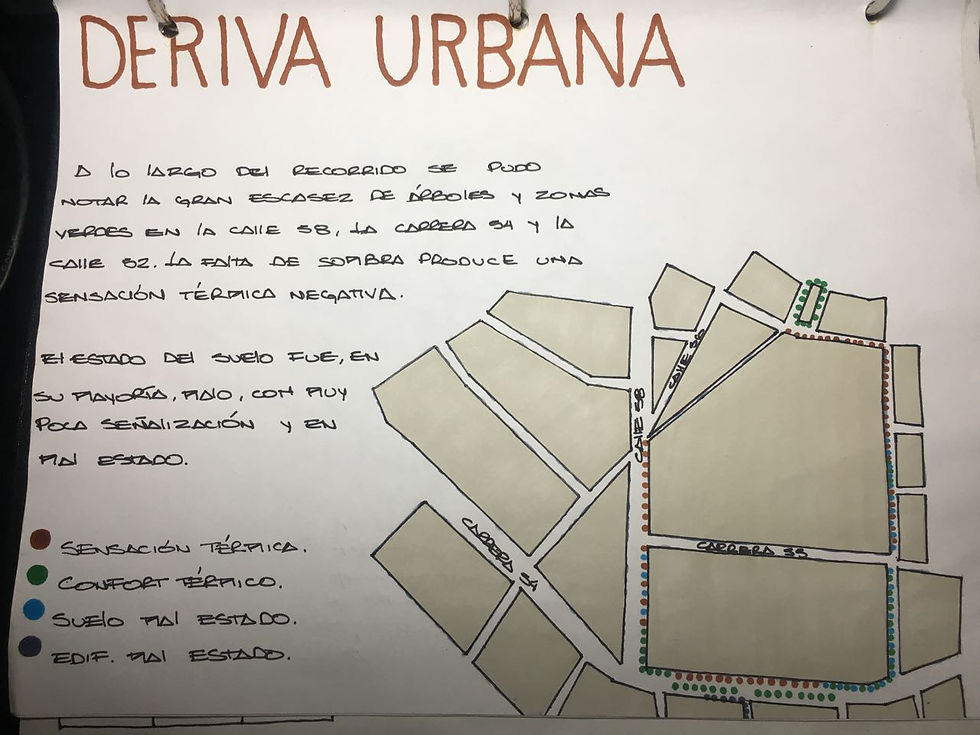 DERIVA URBANA
A lo largo del recorrido se pudo
notar la gran escasez de árboles y zonas
verdes en la Calle 58, la Carrera 54 y la
Calle 52. La falta de sombra produce una
sensación térmica negativa.
El estado del suelo fue, en
su mayoría, malo, con muy
poca señalización y en
mal estado.
CALLE 58
CARRERA 54
CARRERA 55
SENSACIÓN TÉRMICA.
CONFORT TÉRMICO.
SUELO MAL ESTADO.
EDIF. MAL ESTADO.